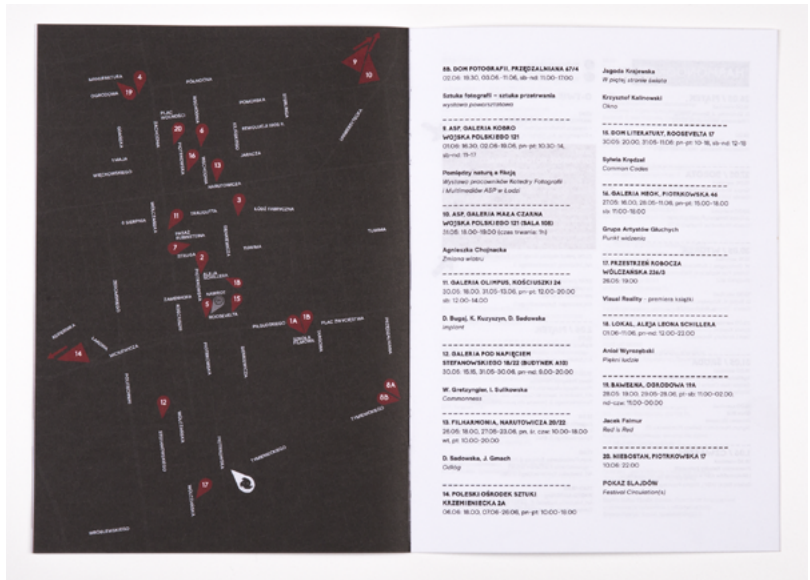 MANUFAKTURA
4
OGRODOWA
19
PÓŁNOCNA
9
10
POMORSKA
PLAC
WOLNOŚCI
20
6
16
13
JARACZA
1 MAJA
WIĘCKOWSKIEGO
NARUTOWICZA
3
11
TRAUGUTTA
ŁÓDŹ FABRYCZNA
6 SIERPNIA
PASAŻ
RUBINSTEINA
7
2
TUWIMA
STRUGA
ALEJA
SCHILLERA
18
NAWROT
5
15
ROOSEVELTA
ZAMENHOFA
PIŁSUDSKIEGO
1A
1B
PLAC ZWYCIĘSTWA
SZKOŁA
FILMOWA
14
MICKIEWICZA
12
8A
8B
17
WRÓBLEWSKIEGO
8B. DOM FOTOGRAFII, PRZĘDZALNIANA 67/4
02.06: 16.30, 03.06-11.06, sb-nd: 11.00-17.00
Sztuka fotografii – sztuka przetrwania
wystawa powarsztatowa
9. ASP, GALERIA KOBRO
WOJSKA POLSKIEGO 121
01.06: 16.30, 02.06-16.06, pn-pt: 10.30-14,
sb-nd: 11-17
Pomiędzy naturą a fikcją
Wystawa pracowników Katedry Fotografii
i Multimediów ASP w Łodzi
10. ASP, GALERIA MAŁA CZARNA
WOJSKA POLSKIEGO 121 (SALA 108)
31.05: 15.00-16.00 (czas trwania: 1h)
Agnieszka Chojnacka
Zmiana wiatru
11. GALERIA OLIMPUS, KOŚCIUSZKI 24
30.05: 18.00, 31.05-13.06, pn-pt: 12.00-20.00
sb: 12.00-14.00
D. Bugaj, K. Kuzyszyn, D. Sadowska
Implant
12. GALERIA POD NAPIĘCIEM
STEFANOWSKIEGO 18/22 (BUDYNEK A10)
30.05: 15.15, 31.05-30.06, pn-nd: 8.00-20.00
W. Gretzyngier, I. Sulikowska
Commonness
13. FILHARMONIA, NARUTOWICZA 20/22
26.05: 18.00, 27.05-23.06, pn, śr, czw: 10.00-18.00
wt, pt: 10.00-20.00
D. Sadowska, J. Gmach
Odłóg
14. POLESKI OŚRODEK SZTUKI
KRZEMIENIECKA 2A
06.06: 18.00, 07.06-26.06, pn-pt: 10.00-18.00
Jagoda Krajewska
W piątej stronie świata
Krzysztof Kalinowski
Okno
15. DOM LITERATURY, ROOSEVELTA 17
30.05: 20.00, 31.05-11.06, pn-pt: 10-18, sb-nd: 12-18
Sylwia Krędzel
Common Codes
16. GALERIA NEOK, PIOTRKOWSKA 46
27.05: 16.00, 28.05-11.06, pn-pt: 15.00-18.00
sb: 11.00-18.00
Grupa Artystów Głuchych
Punkt widzenia
17. PRZESTRZEŃ ROBOCZA
WÓLCZAŃSKA 226/3
26.05: 19.00
Visual Reality - premiera książki
18. LOKAL, ALEJA LEONA SCHILLERA
01.06-11.06, pn-nd: 12.00-22.00
Aniol Wyrozębski
Piękni ludzie
19. BAWEŁNA, OGRODOWA 19A
28.05: 19.00, 29.05-28.06, pt-sb: 11.00-02.00,
nd-czw: 11.00-00.00
Jacek Falmur
Red is Red
20. NIEBOSTAN, PIOTRKOWSKA 17
10.06: 22.00
POKAZ SLAJDÓW
Festival Circulation(s)